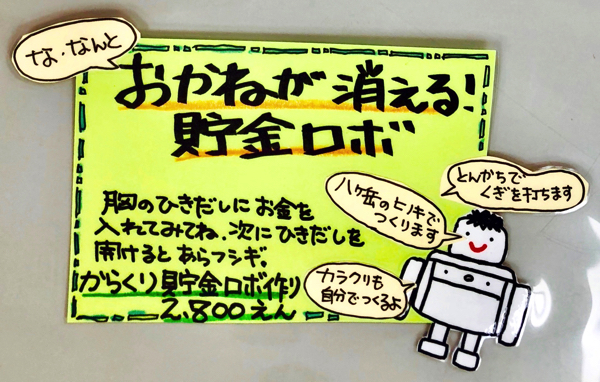 な・なんと
おかねが消える!
貯金ロボ
胸のひきだしにお金を
入れてみてね。次にひきだしを
開けるとあらフシギ。
からくり貯金ロボ作り
2,800えん
とんかちで
くぎを打ちます
八ヶ岳のヒノキで
つくります
カラクリも
自分でつくるよ